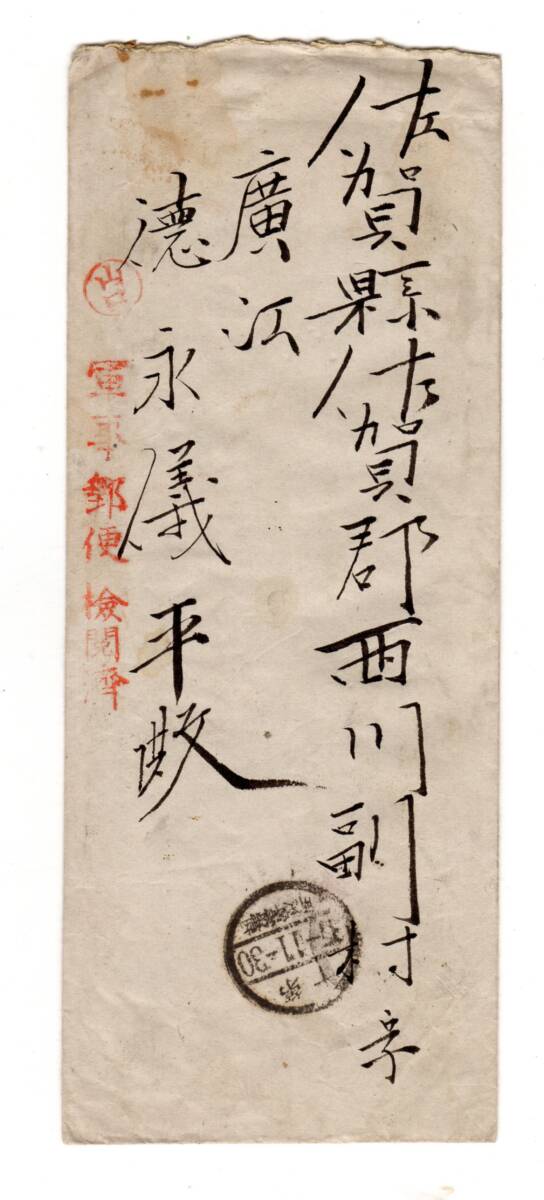 佐賀縣佐賀郡西川副村字
廣江
德永儀平殿
軍事郵便
檢閱濟
37-11-30